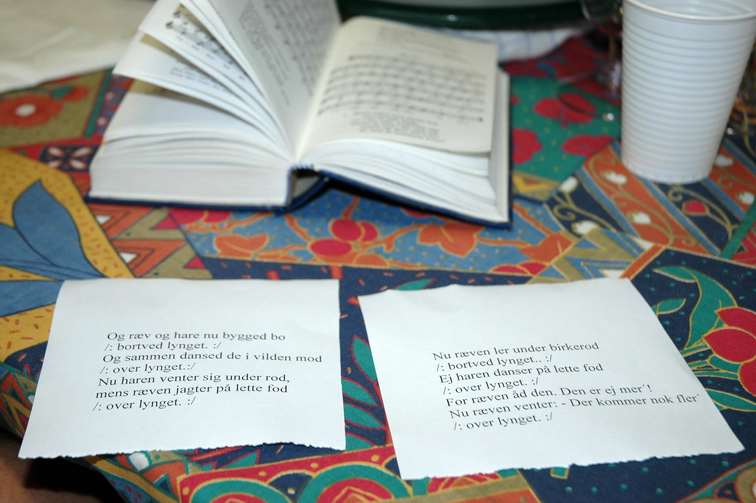 Og ræv og hare nu bygged bo
/: bortved lynget. :/
Og sammen dansed de i vilden mod
/: over lynget.:/
Nu haren venter sig under rod,
mens ræven jagter på lette fod
/: over lynget. :/
Nu ræven ler under birkerod
/: bortved lynget.. :/
Ej haren danser på lette fod
/: over lynget. :/
For ræven åd den. Den er ej mer'!
Nu ræven venter: - Der kommer nok fler'
/: over lynget. :/